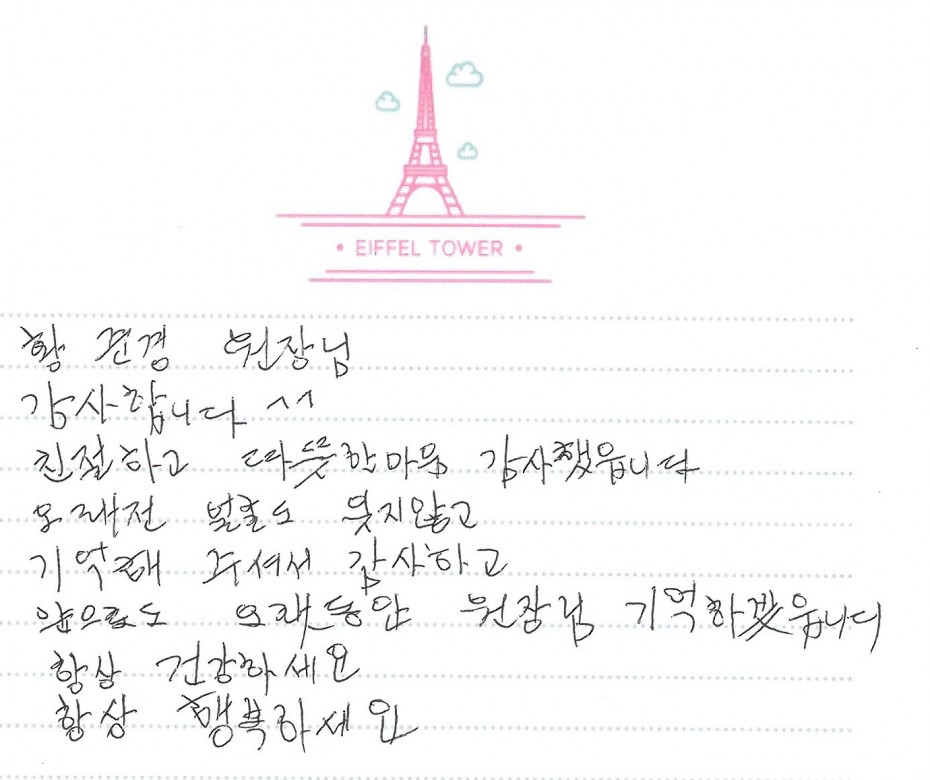 EIFFEL TOWER
황 원장님
감사합니다 ^^
친절하고 따뜻한마음 감사했읍니다
오래전 잊지않고
기억해 주셔서 감사하고
앞으로도 오래동안 원장님 기억하겠읍니다
항상 건강하세요
항상 행복하세요